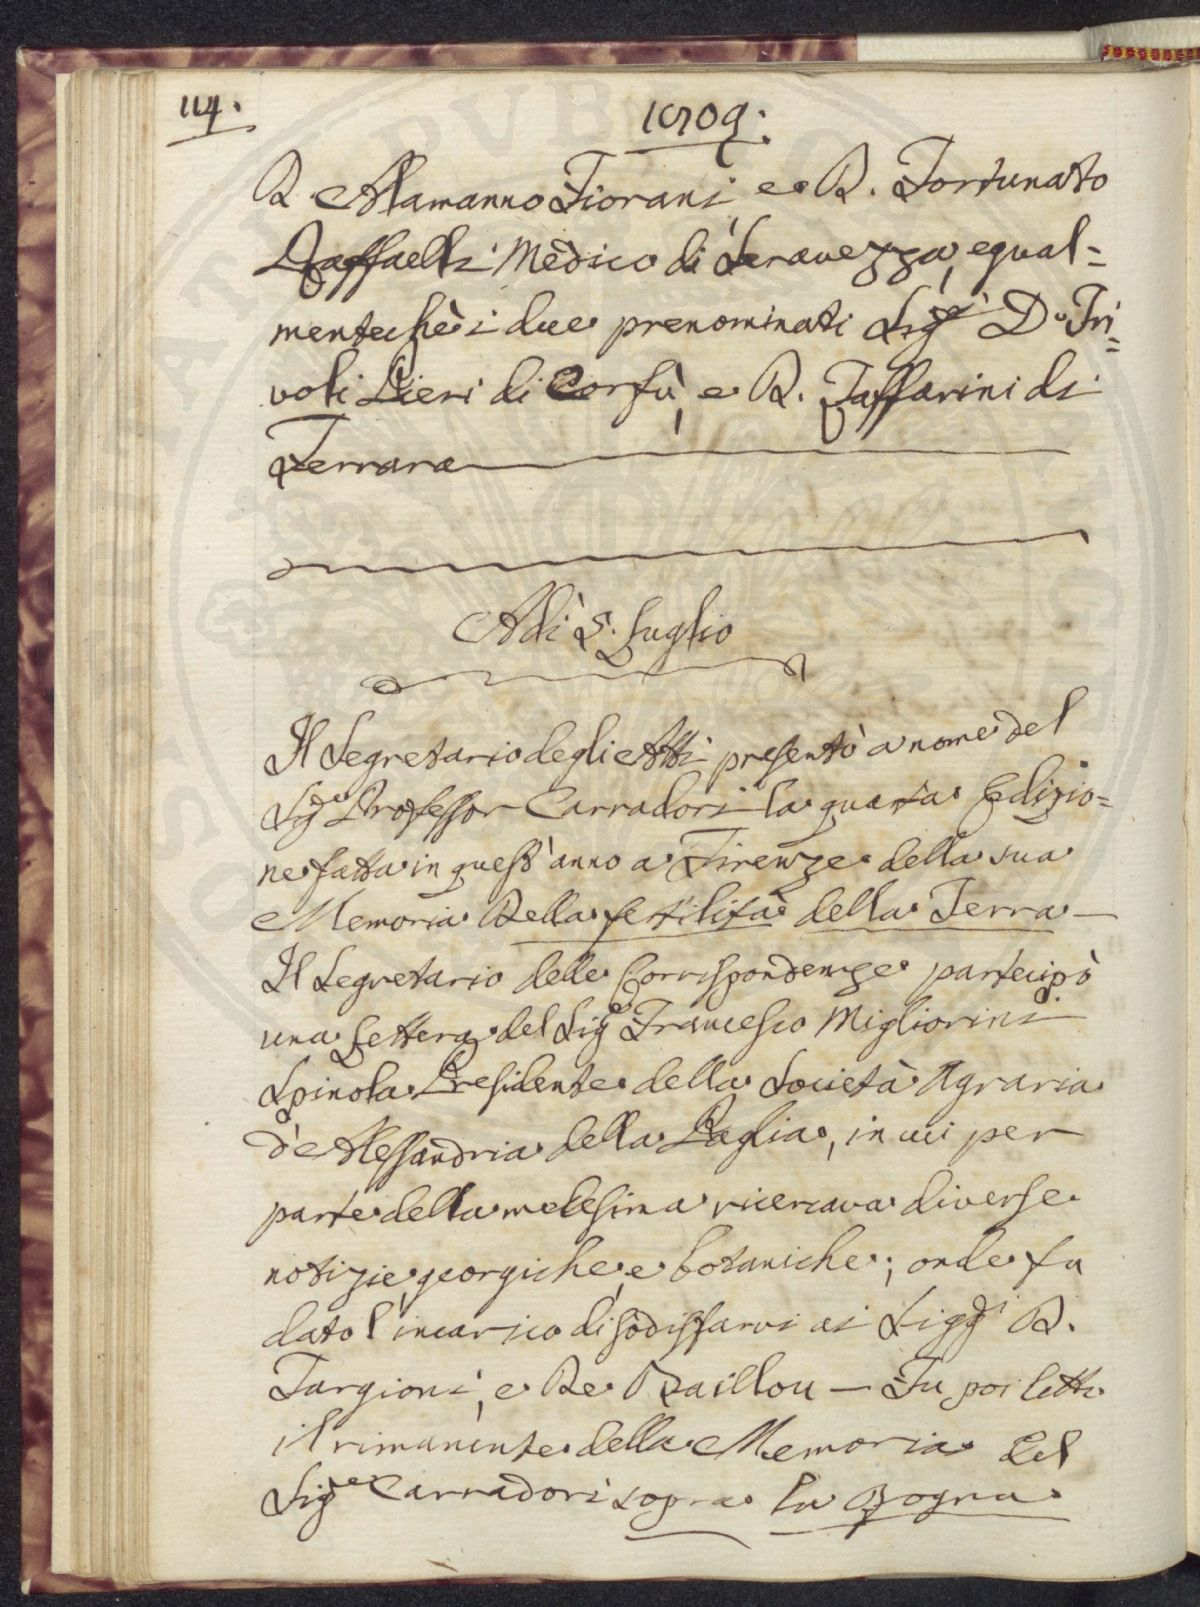 114.
1809.
D. Alamanno Fiorani, e D. Fortunato
Raffaelli Mèdico di Seravezza, egual=
mentechè i due prenominati Sigri D. Tri=
voli Pieri di Corfù, e D. Taffarini di
Ferrara
Adì 5. Luglio
Il Segretario degli Atti presentò a nome del
Sigre Professor Carradori la quarta Edizio=
ne fatta in quest'anno a Firenze della sua
Memoria Della fertilità della Terra —
Il Segretario delle Corrispondenze partecipò
una Lettera del Sige Francesco Migliorini
Spinola Presidente della Società Agraria
d'Alessandria della Paglia, in cui per
parte della medesima ricercava diverse
notizie georgiche, e botaniche; onde fu
dato l'incarico di sodisfarvi ai Sigg.i D.
Targioni, e De Baillou — Fu poi letto
il rimanente della Memoria del
Sige Carradori sopra la Rogna